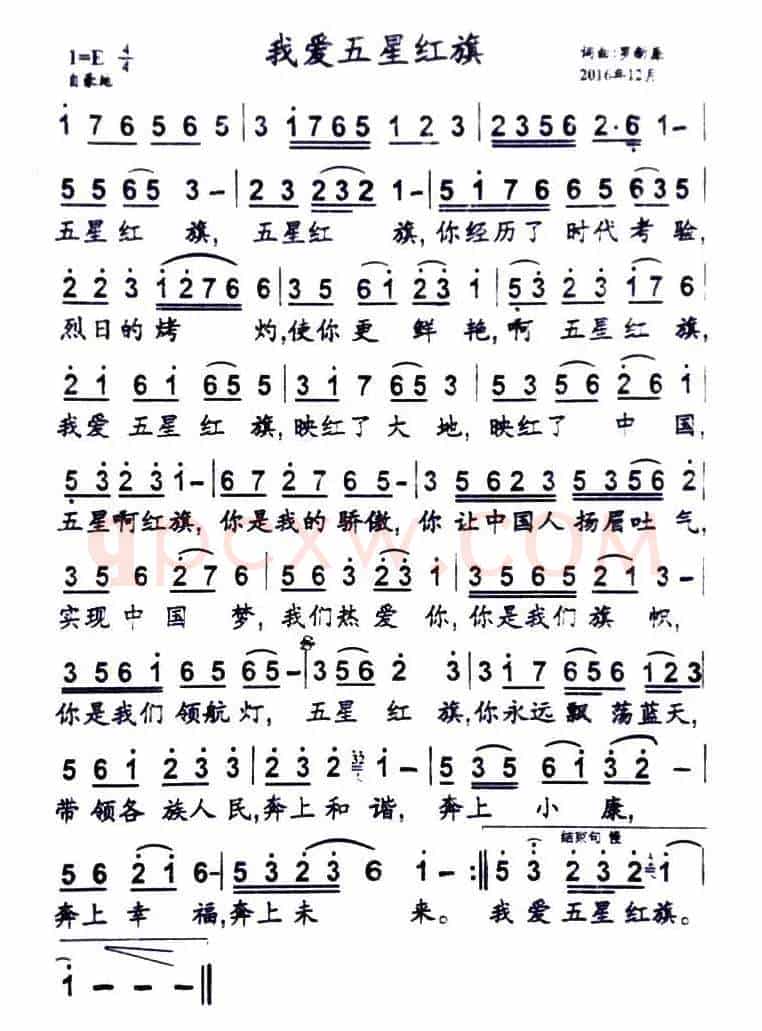 我爱五星红旗
1=E 4/4
自豪地
词曲:罗
2016年12月
1 7 6 5 6 5 | 3 1765 1 2 3 | 2356 2·6 1 - |
5 5 65 3 - | 2 3 232 1 - | 5 1 7 6 5 65 635 |
五星红 旗, 五星红 旗,你经历了 时代考 验,
2 2 3 1276 6 | 3 5 61 23 1 | 53 2 3 17 6 |
烈日的烤 灼,使你更 鲜 艳,啊 五星红旗,
2 1 6 1 65 5 | 3 1 7 65 3 | 5 3 56 26 1 |
我爱 五星 红 旗,映红了 大 地,映红了 中 国,
5 3 2 3 1 - | 6 7 2 7 6 5 - | 3 5 6 2 3 5 3 5 6 2 |
五星啊红旗,你是我的 骄傲,你 让中国人 扬眉吐 气,
3 5 6 27 6 | 5 6 3 23 1 | 3 5 6 5 21 3 - |
实现中 国 梦,我们热 爱 你,你是我们 旗 帜,
3 5 6 1 6 5 65 - | 3 56 2 3 | 3 1 7 656 123 |
你是我们 领航灯, 五星 红 旗,你永远 飘 荡蓝天,
5 6 1 3 2 2 | 2 3 2 32 1 - | 5 35 61 32 |
带领各 族人民,奔上和 谐, 奔上 小 康,
结束句 慢
5 6 21 6 - | 5 3 2 3 6 1 - :|| 5 3 2 3 2 1
奔上 幸 福,奔上未 来。 我 爱五星红旗。
1 - - - ||
qpcxw.com